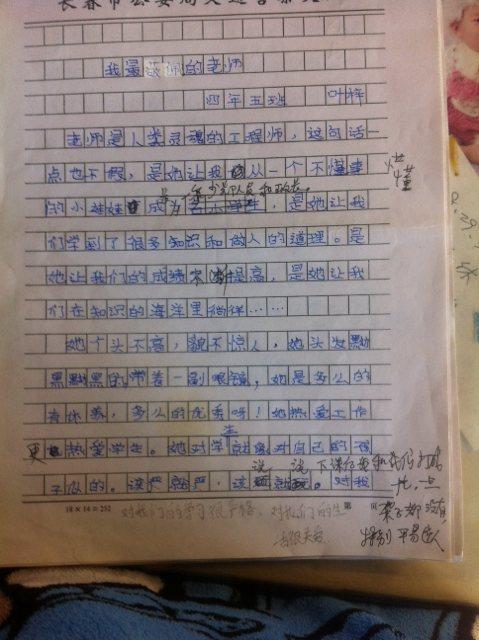 我最敬佩的老师
四年五班 叶梓
老师是人类灵魂的工程师，这句话一
点也不假，是她让我从一个不懂事
懂
的小娃娃成为
少先队员和班长。
是她让我
们学到了很多知识和做人的道理。是
她让我们的成绩不断提高，是她让我
们在知识的海洋里徜徉……
她个头不高，貌不惊人，她头发黝
黑黝黑的带着一副眼镜，她是多么的
有休养，多么的优秀呀！她热爱工作
更热爱学生。她对学生就象对自己的孩
子似的。该严就严，该说就说。对我
下课后
和我们打成
一片，一点
架子都没有，
特别平易近人
对我们的学习很严格，对我们的生
活很关爱
18×14=252
第 页